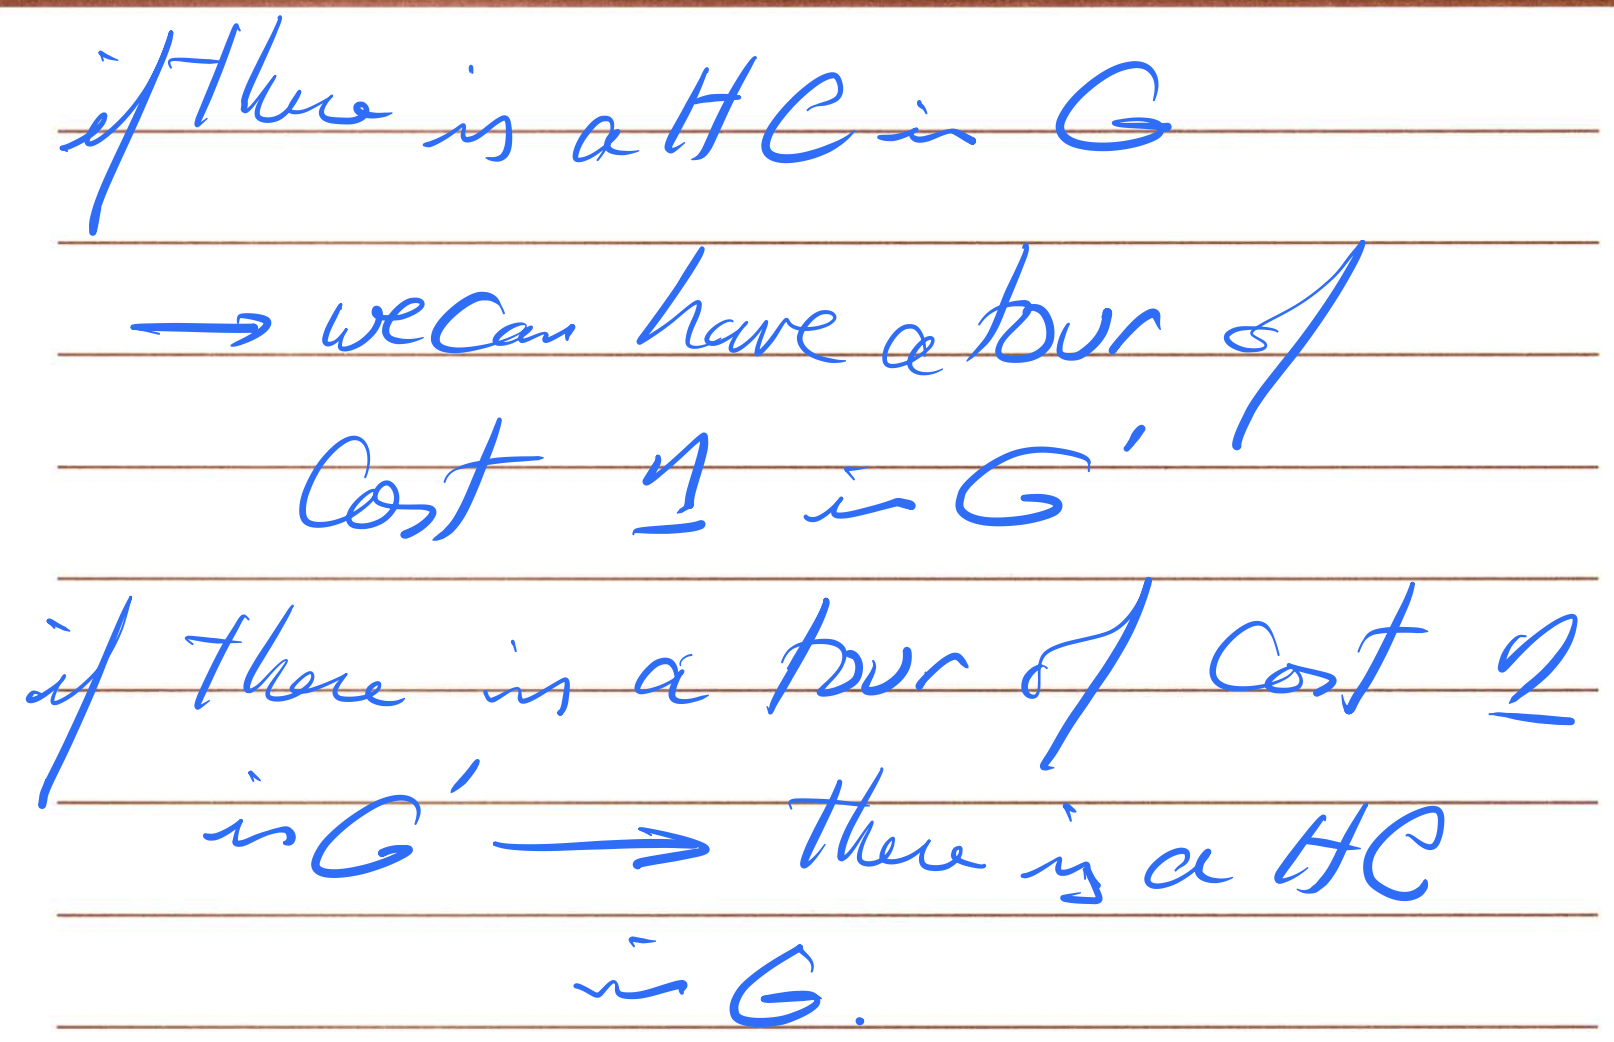 if there is a HC in G
→ we can have a tour of
Cost 1 in G'
if there is a tour of Cost 1
in G' → there is a HC
in G.